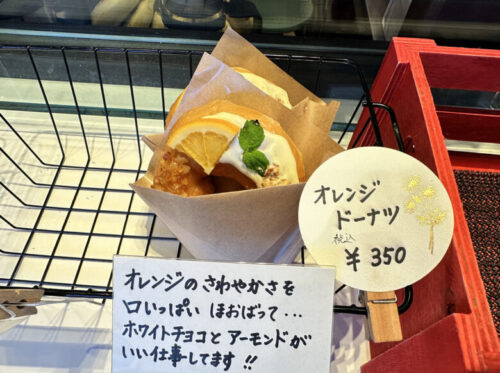 オレンジ
ドーナツ
税込
¥350
オレンジの さわやかさを
口いっぱい ほおばって...
ホワイトチョコと アーモンドが
いい仕事してます!!